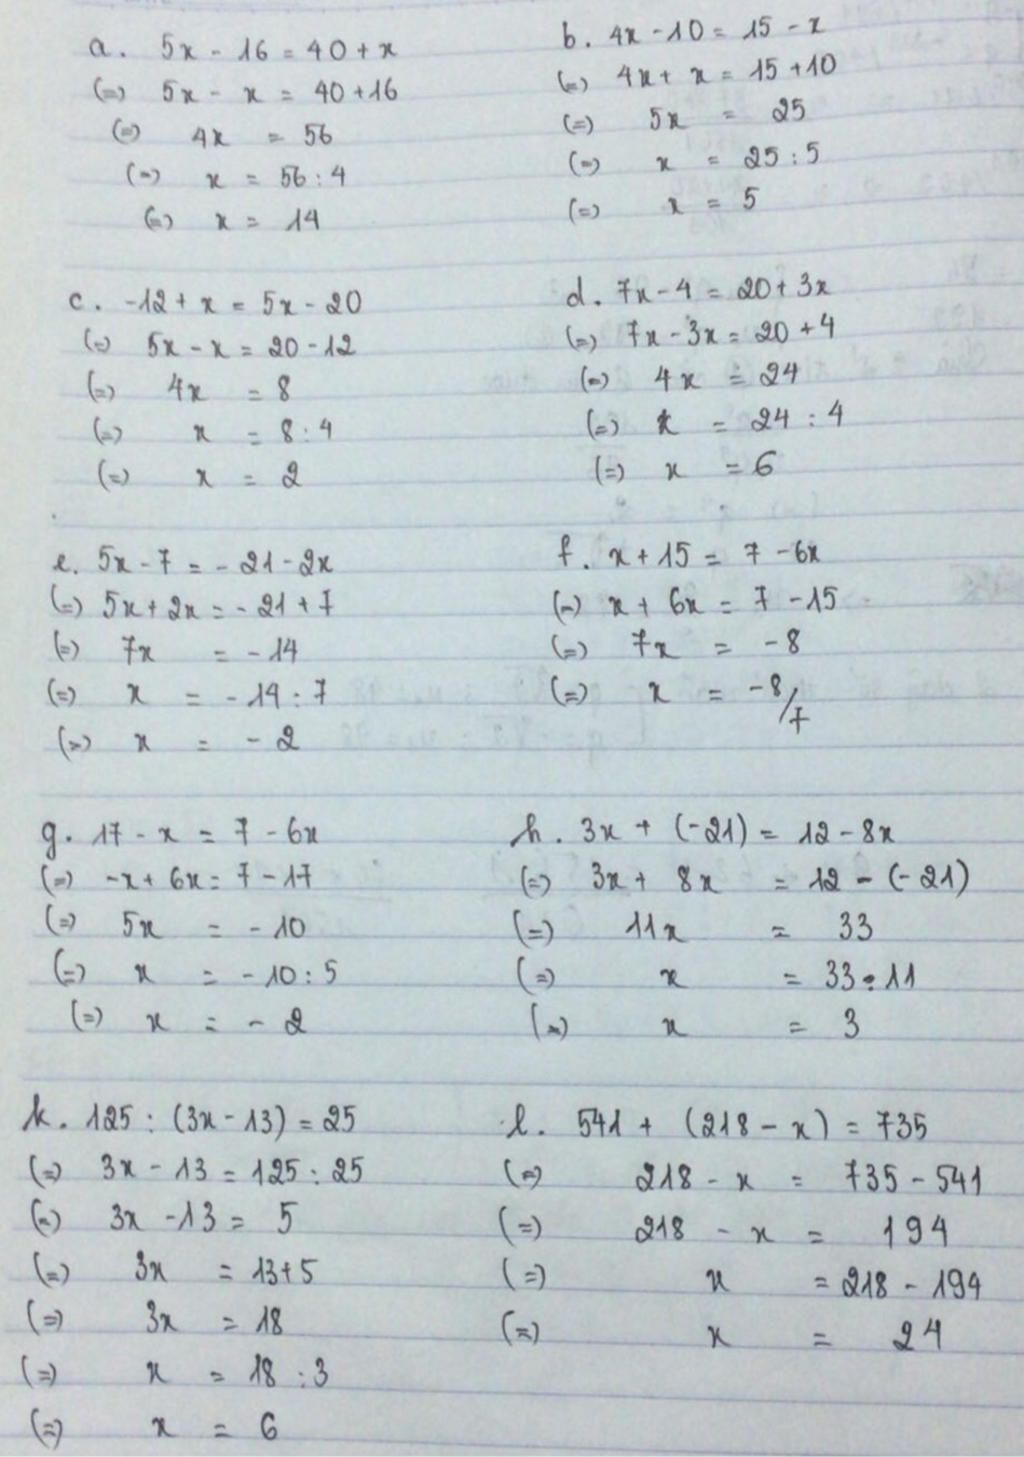 a. 5x - 16 = 40 + x
(=) 5x - x = 40 + 16
(=) 4x = 56
(=) x = 56 : 4
(=) x = 14
b. 4x - 10 = 15 - x
(=) 4x + x = 15 + 10
(=) 5x = 25
(=) x = 25 : 5
(=) x = 5
c. -12 + x = 5x - 20
(=) 5x - x = 20 - 12
(=) 4x = 8
(=) x = 8 : 4
(=) x = 2
d. 7x - 4 = 20 + 3x
(=) 7x - 3x = 20 + 4
(=) 4x = 24
(=) x = 24 : 4
(=) x = 6
e. 5x - 7 = - 21 - 2x
(=) 5x + 2x = - 21 + 7
(=) 7x = - 14
(=) x = - 14 : 7
(=) x = - 2
f. x + 15 = 7 - 6x
(=) x + 6x = 7 - 15
(=) 7x = - 8
(=) x = -8/7
g. 17 - x = 7 - 6x
(=) -x + 6x = 7 - 17
(=) 5x = - 10
(=) x = - 10 : 5
(=) x = - 2
h. 3x + (-21) = 12 - 8x
(=) 3x + 8x = 12 - (-21)
(=) 11x = 33
(=) x = 33 : 11
(=) x = 3
k. 125 : (3x - 13) = 25
(=) 3x - 13 = 125 : 25
(=) 3x - 13 = 5
(=) 3x = 13 + 5
(=) 3x = 18
(=) x = 18 : 3
(=) x = 6
l. 541 + (218 - x) = 735
(=) 218 - x = 735 - 541
(=) 218 - x = 194
(=) x = 218 - 194
(=) x = 24